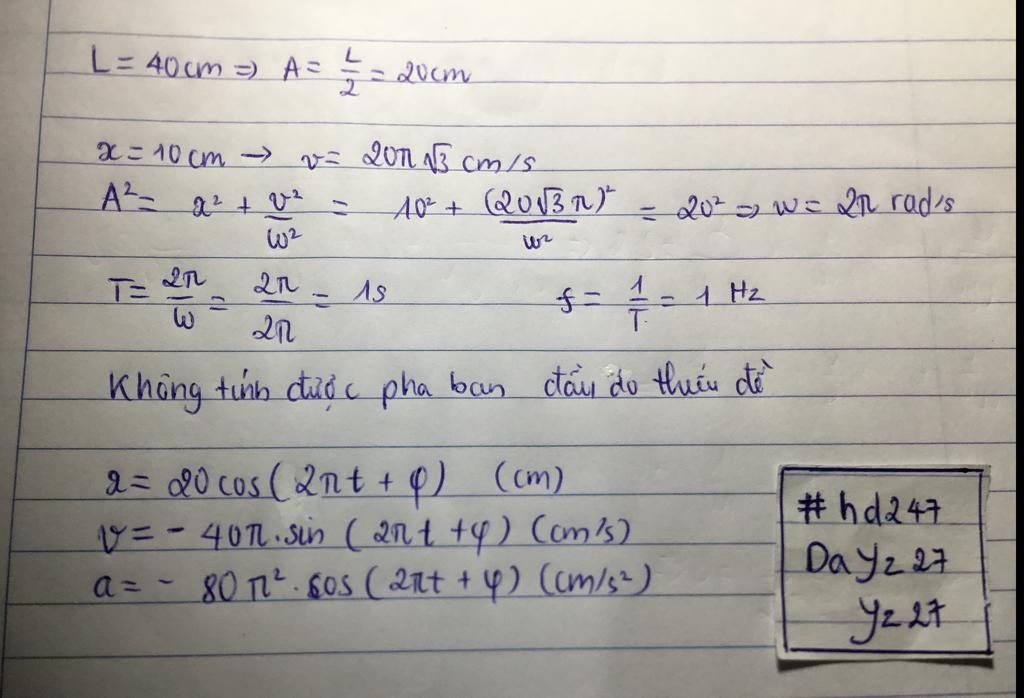 L = 40cm => A = L/2 = 20cm
x = 10cm → v = 20π√3 cm/s
A² = x² + v²/ω² = 10² + (20√3π)²/ω² = 20² => ω = 2π rad/s
T = 2π/ω = 2π/2π = 1s f = 1/T = 1 Hz
Không tính được pha ban đầu do thiếu đề
x = 20cos(2πt + φ) (cm)
v = - 40π.sin (2πt + φ) (cm/s)
a = - 80π².cos(2πt + φ) (cm/s²)
#hd247
Dayz27
yz27